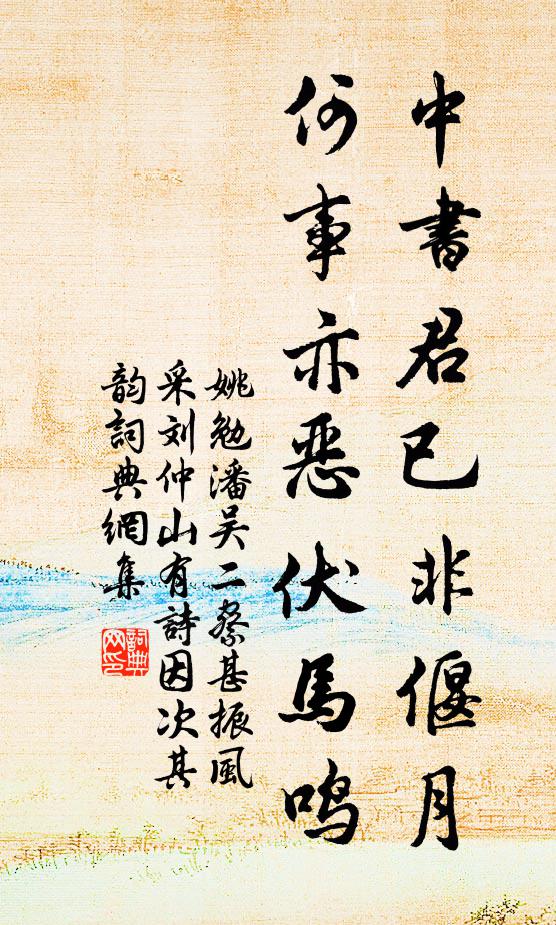 中書君已非偃月
何事亦恶伏馬鳴
姚勉潘吴二察甚振風
采刘仲山有詩因次其
韵詞典網集
詞典
网印